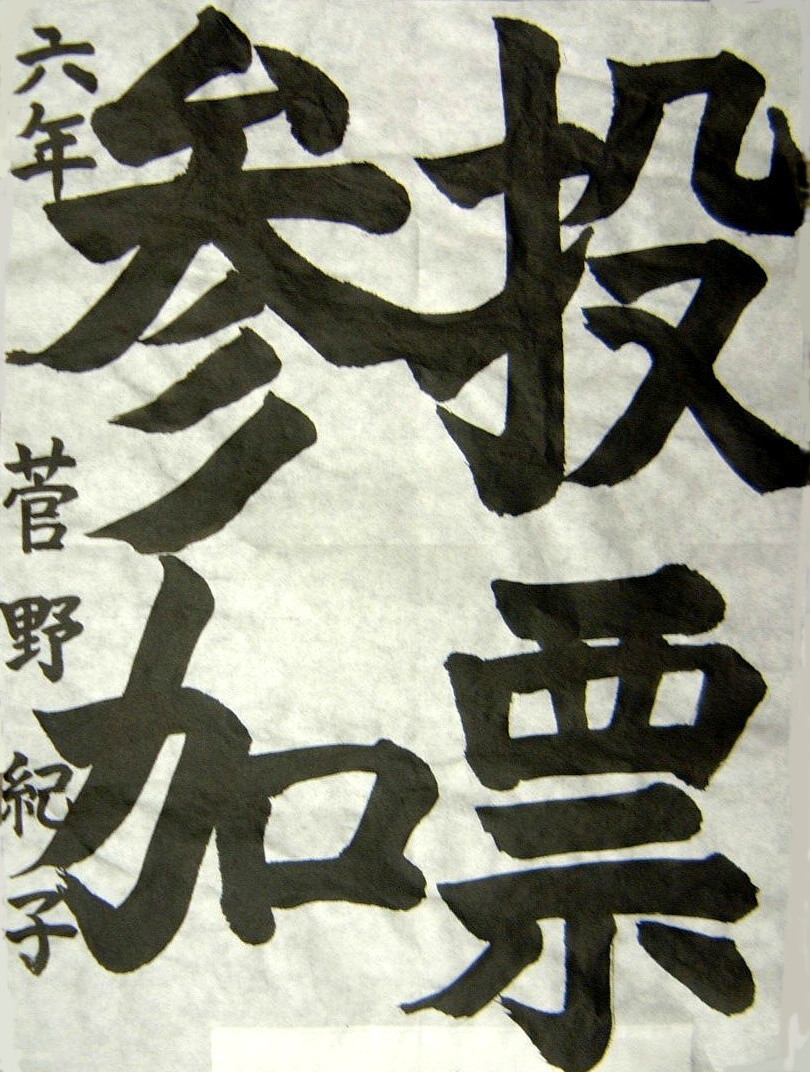 投票
参加
六年 菅野紀子